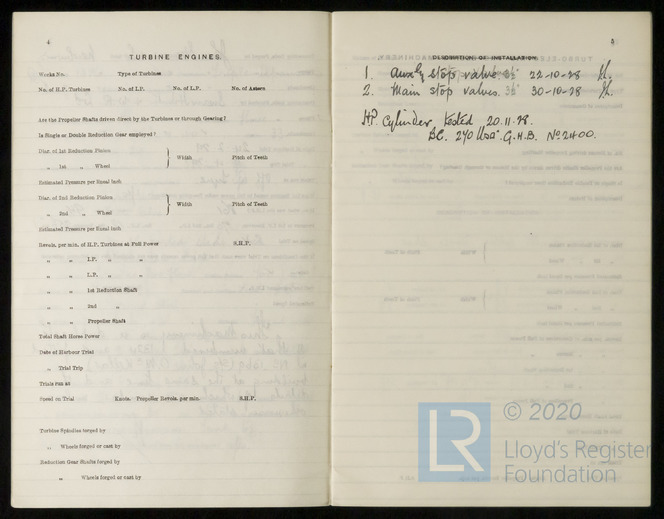 4
TURBINE ENGINES.
Works No. Type of Turbines
No. of H.P. Turbines No. of I.P. No. of L.P. No. of Astern
Are the Propeller Shafts driven direct by the Turbines or through Gearing?
Is Single or Double Reduction Gear employed?
Diar. of 1st Reduction Pinion
„ 1st „ Wheel } Width Pitch of Teeth
Estimated Pressure per lineal inch
Diar. of 2nd Reduction Pinion
„ 2nd „ Wheel } Width Pitch of Teeth
Estimated Pressure per lineal inch
Revols. per min. of H.P. Turbines at Full Power S.H.P.
„ „ I.P. „ „
„ „ L.P. „ „
„ „ 1st Reduction Shaft
„ „ 2nd „
„ „ Propeller Shaft
Total Shaft Horse Power
Date of Harbour Trial
„ Trial Trip
Trials run at
Speed on Trial Knots. Propeller Revols. per min. S.H.P.
Turbine Spindles forged by
„ Wheels forged or cast by
Reduction Gear Shafts forged by
„ Wheels forged or cast by
5
DESCRIPTION OF INSTALLATION.
1. Auxy stop valve 3½" 22-10-28
2. Main stop valves. 3½" 30-10-28
HP Cylinder tested 20.11.28.
BC. 270 lbs □" G.H.B. No 2400.
© 2020
LR Lloyd's Register
Foundation